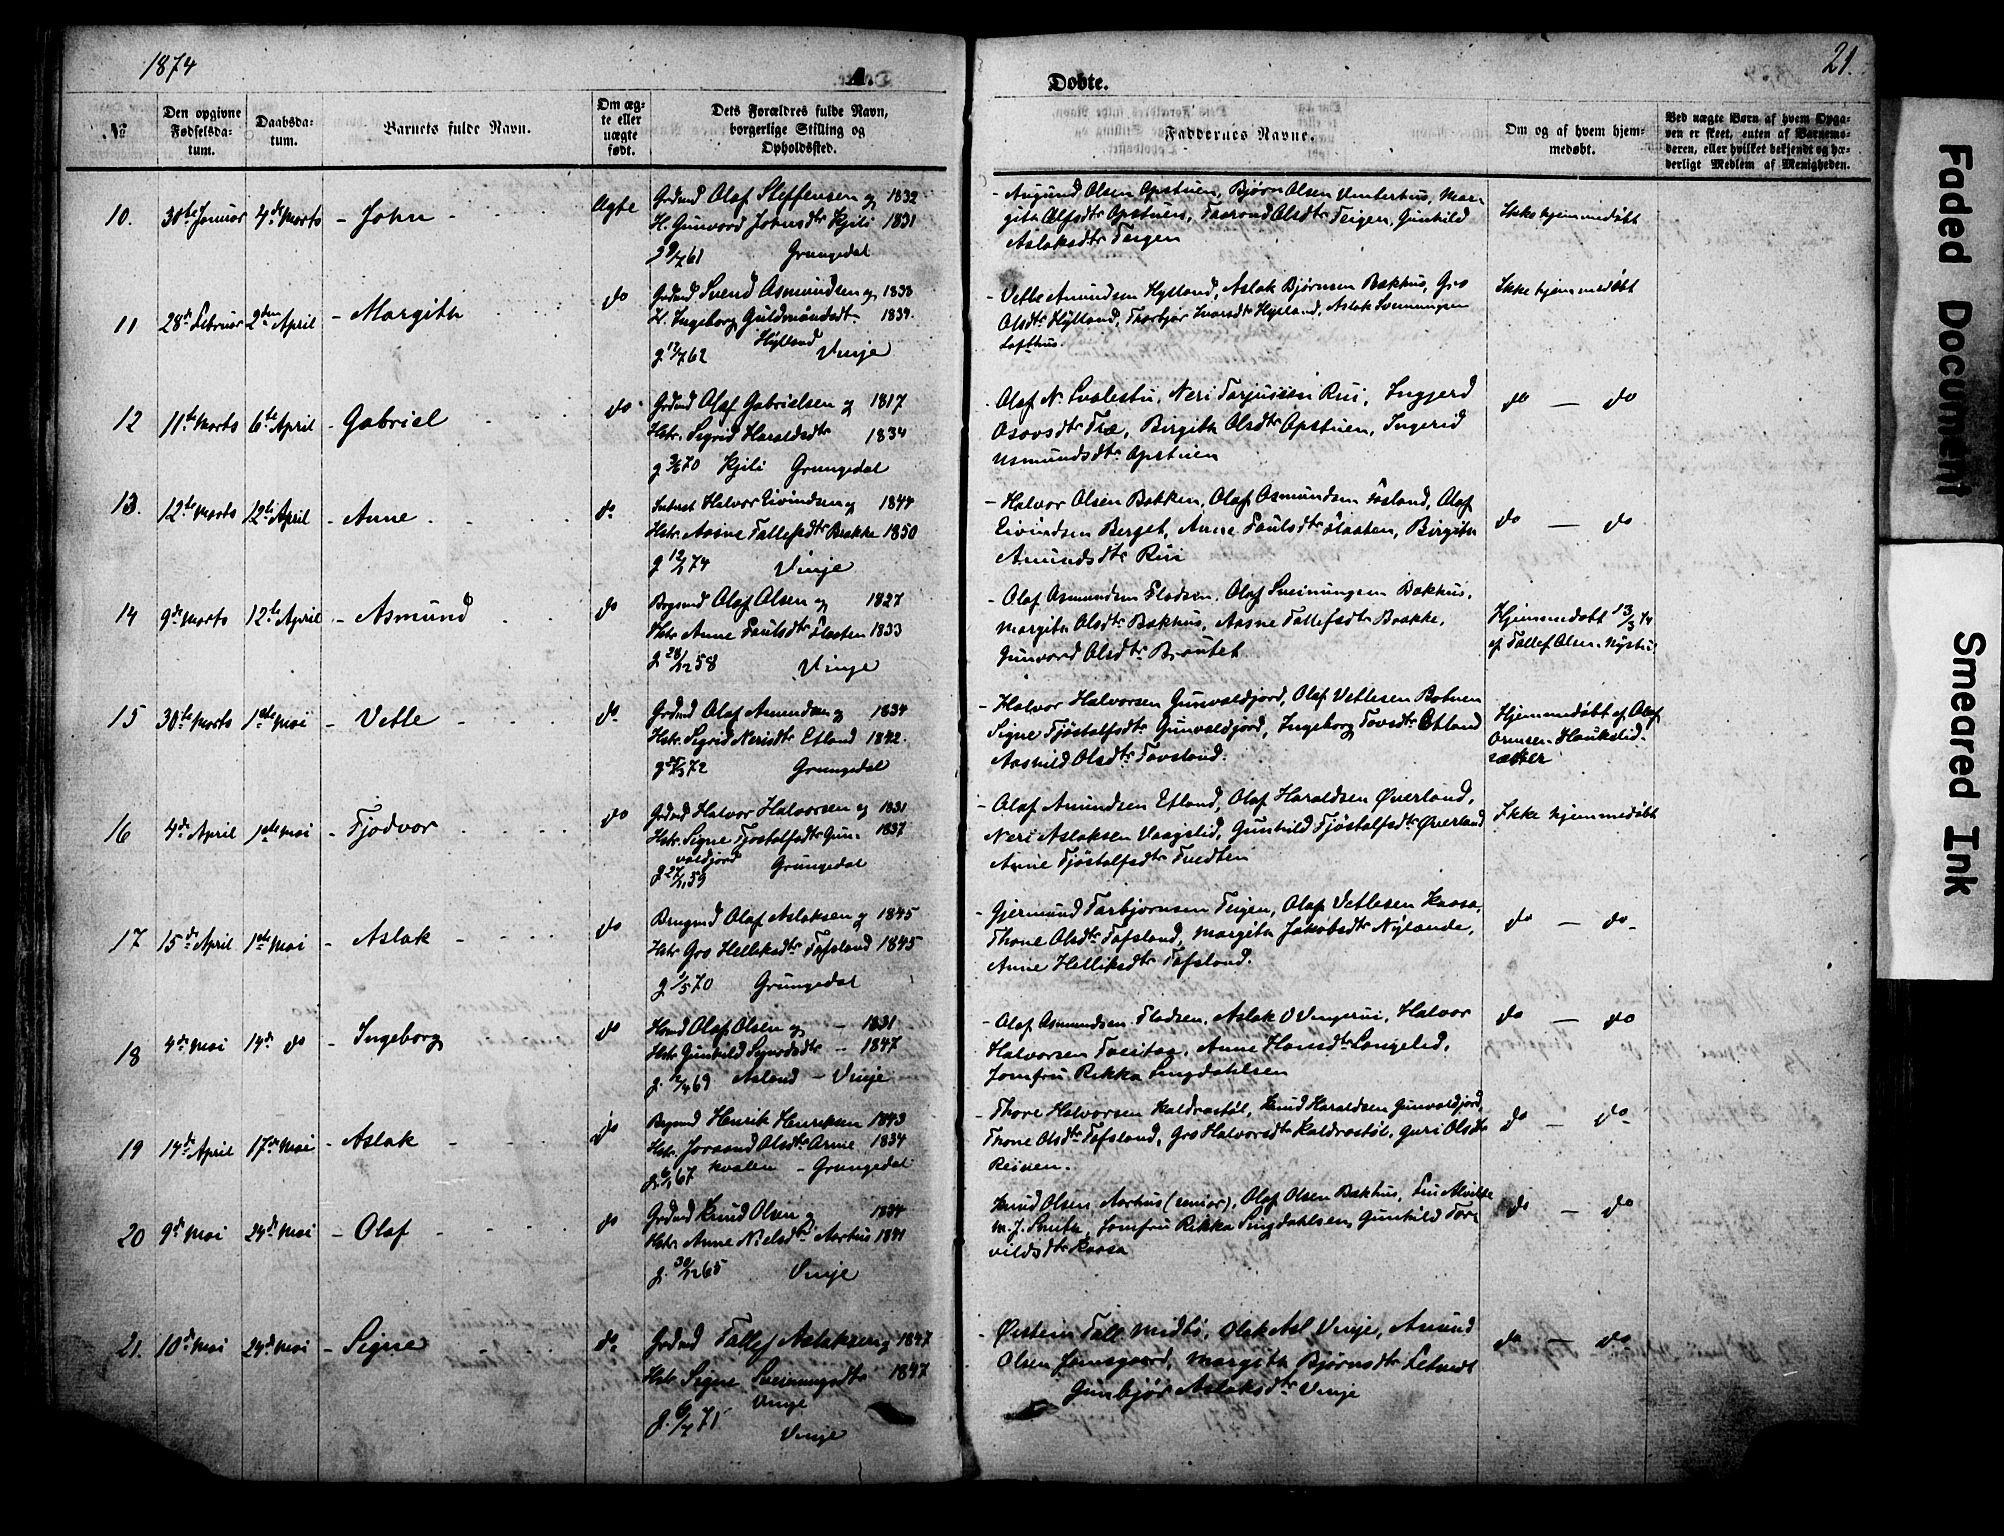 1874
A.
Døbte.
21.
№
Den opgivne Fødselsdatum.
Daabsdatum.
Barnets fulde Navn.
Om ægte eller uægte født.
Dets Forældres fulde Navn, borgerlige Stilling og Opholdssted.
Faddernes Navne.
Om og af hvem hjemmedøbt.
Ved uægte Børn af hvem Opgaven er skeet, enten af Barnemoderen, eller hvilket bekjendt og hæderligt Medlem af Menigheden.
10. 30te Januar 4de Marts - John Ægte
Grdmd Olaf Steffensen og 1832
H. Gunvord Johnsdtr Kjili 1831
Grungedal
- Augund Olsen Opstuen, Bjørn Olsen Vinterhus, Mar-
gita Olfsdtr Opstuen, Taarond Olsdtr Teigen, Gunhild
Aslaksdtr Teigen
Ikke hjemmedøbt
11 28de Februar 2den April - Margith do
Grdmd Svend Asmundsen og 1838
H. Ingeborg Guldmundsdt. 1839.
Hylland
g 12/7 62 Vinje
- Vetle Amundsen Hylland, Aslak Bjørnsen Bakhus, Gro
Olsdtr Hylland, Thorbjør Ivarsdtr Hylland, Aslak Sveinungsen
Lofthus
Ikke hjemmedøbt
12 11te Marts 6te April - Gabriel do
Grdmd Olaf Gabrielsen og 1817
Hstr. Sigrid Haraldsdtr 1834
70 Kjili Grungedal
Olaf N. Svalestu, Neri Tarjussen Rui, Ingjerd
Osovsdtr Træ, Birgith Olsdtr Opstuen, Ingerid
Asmundsdtr Opstuen
do — do
13. 12te Marts 12te April - Anne do
Halvor Eivindsen og 1844
Hstr. Aasne Tallefsdtr Brække 1850
g 12/1 74 Vinje
- Halvor Olsen Bakken, Olaf Asmundsen Øosland, Olaf
Eivindsen Berget, Anne Paulsdtr Flaaten, Birgith
Amundsdtr Rui
do — do
14 9de Marts 12te April - Asmund do
Bygmd Olaf Olsen og 1827
Hstr Anne Paulsdtr Flaaten 1833
g 28/12 58 Vinje
- Olaf Asmundsen Flodsen, Olaf Sveinungsen Bakhus,
Margith Olsdtr Bakhus, Aasne Tallefsdtr Brække,
Gunvord Olsdtr Brautet
Hjemmedøbt 13/3 74
af Tallef Olsen Nystu
15 30te Marts 1ste Mai - Vetle do
Grdmd Olaf Amundsen og 1834
Hstr. Sigrid Nerisdtr Etland 1842.
72 Grungedal
- Halvor Halvorsen Gunvaldjord, Olaf Vetlesen Botnen
Signe Tjøstolfsdtr Gunvaldjord, Ingeborg Tovsdtr Etland
Aashild Olsdtr Tovsland.
Hjemmedøbt af Olaf
Ormsen Haukelid-
sæter
16 4de April 1ste Mai - Tjodvor do
Grdmd Halvor Halvorsen og 1831
Hstr. Signe Tjøstolfsdtr Gun- 1837
valdjord
g 27/11 59 Grungedal
- Olaf Amundsen Etland, Olaf Haraldsen Øverland,
Neri Aslaksen Vaagslid, Gunhild Tjøstolfsdtr Øverland
Anne Tjøstolfsdtr Tvedten
Ikke hjemmedøbt
17 15de April 1ste Mai - Aslak do
Brugmd Olaf Aslaksen og 1845
Hstr Gro Helliksdtr Tofsland 1845
g 1/5 70 Grungedal
- Gjermund Tarbjørnsen Teigen, Olaf Vetlesen Kaasa,
Thone Olsdtr Tofsland, Margith Jakobsdtr Nylænde,
Anne Helliksdtr Tofsland.
do — do
18 4de Mai 14de do - Ingeborg do
Hmd Olaf Olsen og — 1831
Hstr Gunhild Sjurdsdtr — 1847
69 Asland - Vinje
- Olaf Asmundsen Flodsen, Aslak O Vingerui, Halvor
Halvorsen Tasitaa, Anne Hansdtr Langelid,
Jomfru Rikka Singdahlsen
do — do
19 14de April 17de Mai - Aslak do
Bygmd Henrik Henriksen 1843
Hstr. Joraand Olsdtr Arne 1834
67 kvalen - Grungedal
- Thore Halvorsen Kaldrastøl, Knud Haraldsen Gunvaldjord,
Thone Olsdtr Tofsland, Gro Halvorsdtr Kaldrastøl, Guri Olsdtr
Reinen.
do — do
20 9de Mai 24de Mai - Olaf do
Grdmd Knud Olsen og 1834
Hstr. Anne Nielsdtr Aarhus 1841
g. 30/12 65 Vinje
Knud Olsen Aarhus (senior), Olaf Olsen Bakhus,
M. J. Smith, Jomfru Rikka Singdahlsen, Gunhild Tor-
vildsdtr Kaasa
do — do
21. 10de Mai 24de Mai - Signe do
Grdmd Tallef Aslaksen 1847
Hstr Signe Sveinungsdtr 1847
Vinje
g. 6/7 71 Vinje
- Østein Tall. Midtbø, Olak Asl Vinje, Amund
Olsen Jamsgaard, Margith Bjørnsdtr
Gunbjør Aslaksdtr Vinje
do — do
Faded Document
Smeared Ink